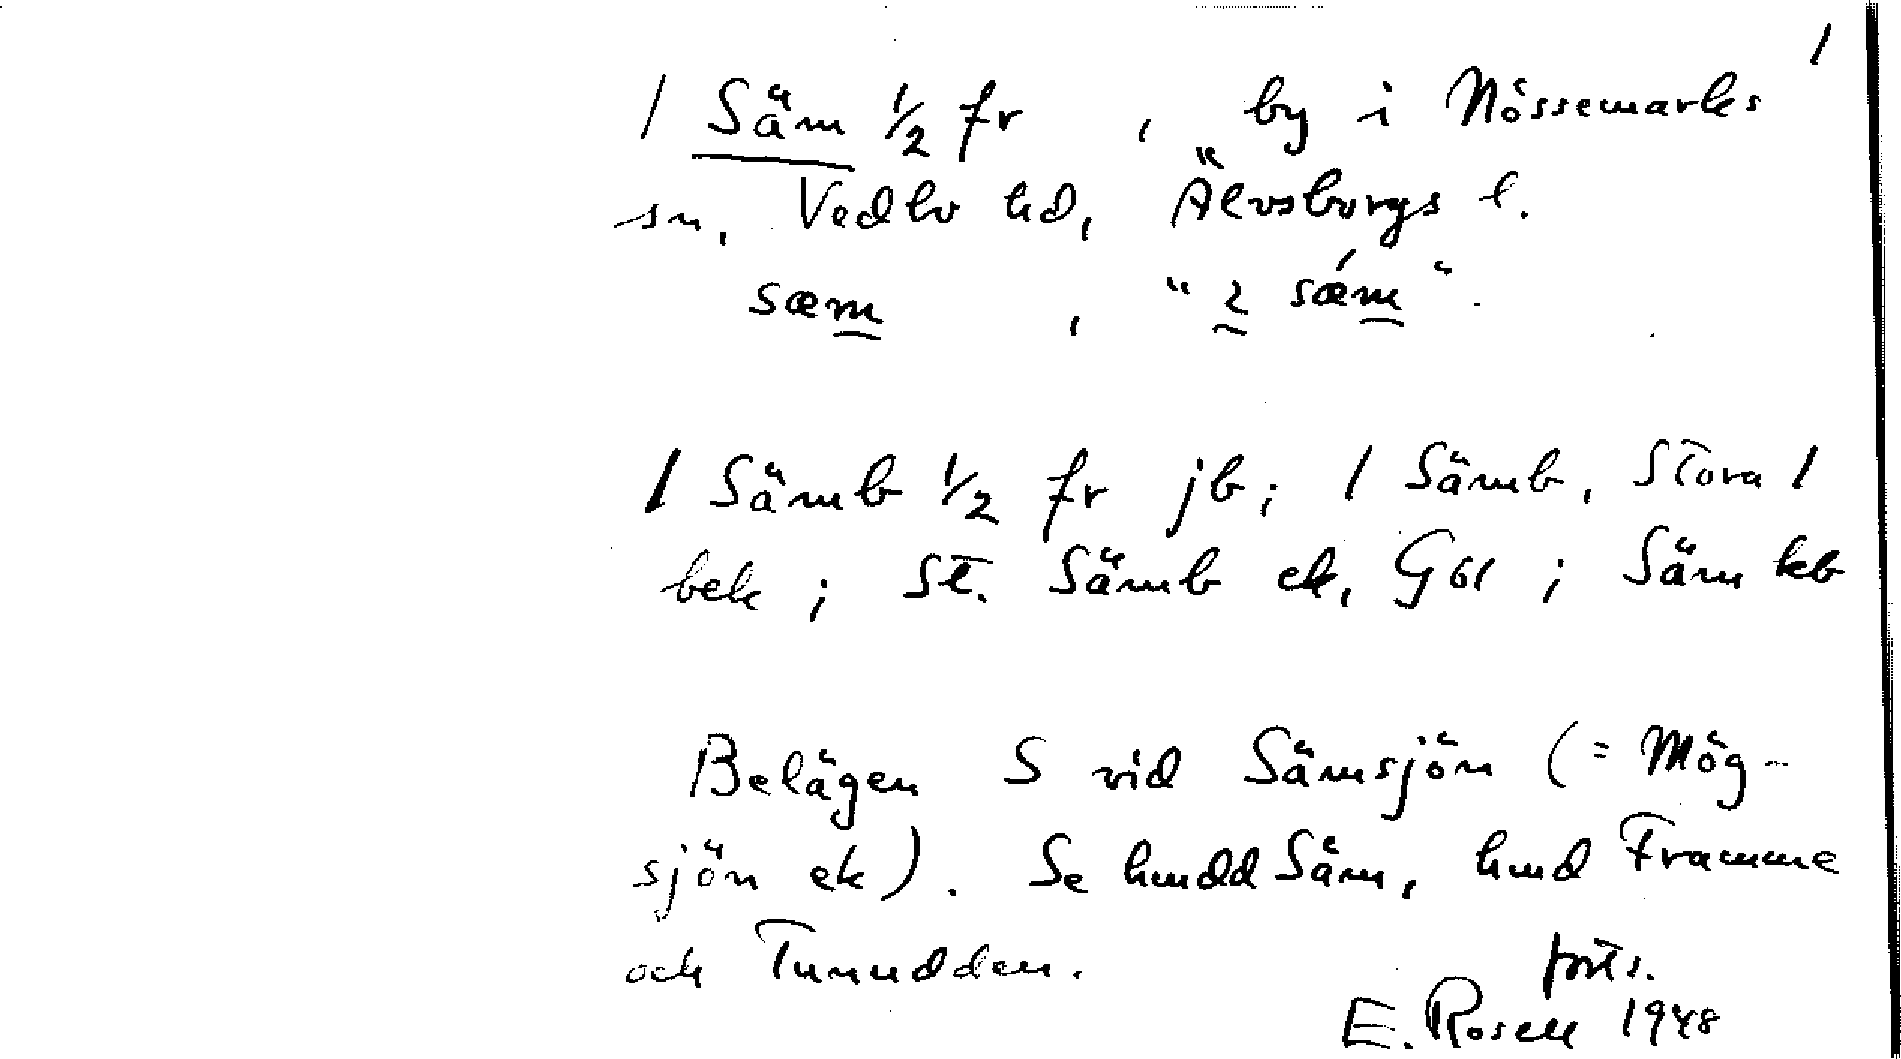 1
1 Säm 1/2 fr , by i Nössemarks
sn, Vedbo hd, Älvsborgs l.
sæm , " 2 sǽm ".
1 Sämb 1/2 fr jb; 1 Sämb, Stora 1
bek ; St. Sämb ek, G61 ; Säm kb
Belägen S vid Sämsjön (= Mög-
sjön ek). Se hmdd Säm, hmd Framme
och Tunudden.
forts.
E. Rosell 1948